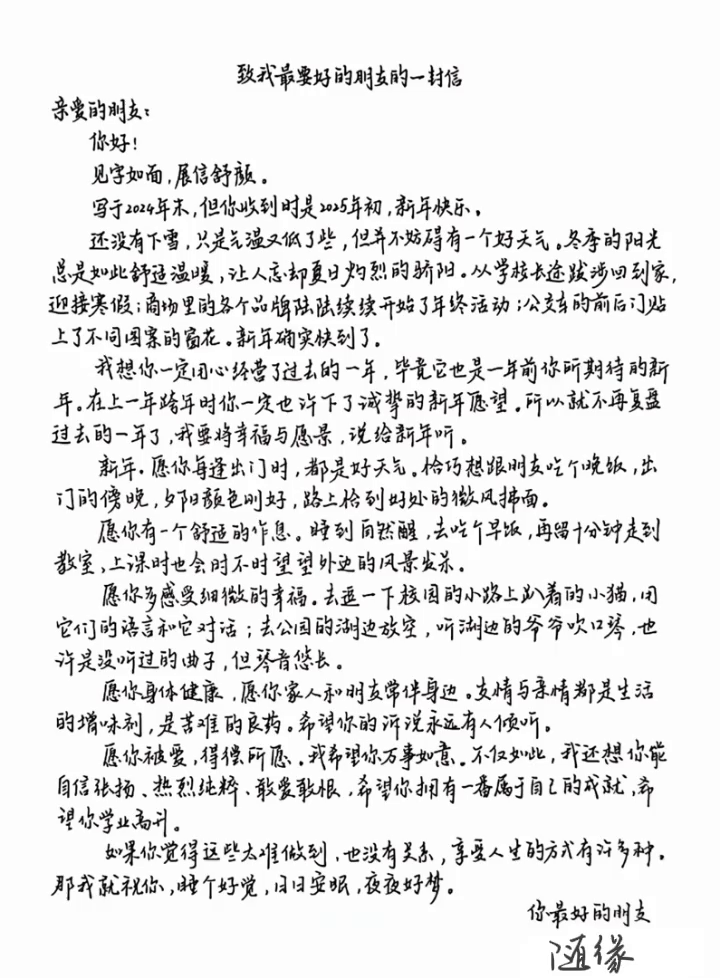 致我最要好的朋友的一封信
亲爱的朋友：
你好！
见字如面，展信舒颜。
写于2024年末，但你收到时是2025年初，新年快乐。
还没有下雪，只是气温又低了些，但并不妨碍有一个好天气。冬季的阳光
总是如此舒适温暖，让人忘却夏日灼烈的骄阳。从学校长途跋涉回到家，
迎接寒假；商场里的各个品牌陆陆续续开始了年终活动；公交车的前后门贴
上了不同图案的窗花。新年确实快到了。
我想你一定用心经营了过去的一年，毕竟它也是一年前你所期待的新
年。在上一年跨年时你一定也许下了诚挚的新年愿望。所以就不再复盘
过去的一年了，我要将幸福与愿景，说给新年听。
新年·愿你每逢出门时，都是好天气。恰巧想跟朋友吃个晚饭，出
门的傍晚，夕阳颜色刚好，路上恰到好处的微风拂面。
愿你有一个舒适的作息。睡到自然醒，去吃个早饭，再留十分钟走到
教室，上课时也会时不时望望外边的风景发呆。
愿你多感受细微的幸福。去逗一下校园的小路上趴着的小猫，用
它们的语言和它对话；去公园的湖边放空，听湖边的爷爷吹口琴，也
许是没听过的曲子，但琴音悠长。
愿你身体健康，愿你家人和朋友常伴身边。友情与亲情都是生活
的增味剂，是苦难的良药。希望你的诉说永远有人倾听。
愿你被爱，得偿所愿。我希望你万事如意。不仅如此，我还想你能
自信张扬、热烈纯粹、敢爱敢恨，希望你拥有一番属于自己的成就，希
望你学业高升。
如果你觉得这些太难做到，也没有关系，享受人生的方式有许多种。
那我就祝你，睡个好觉，日日安眠，夜夜好梦。
你最好的朋友
随缘